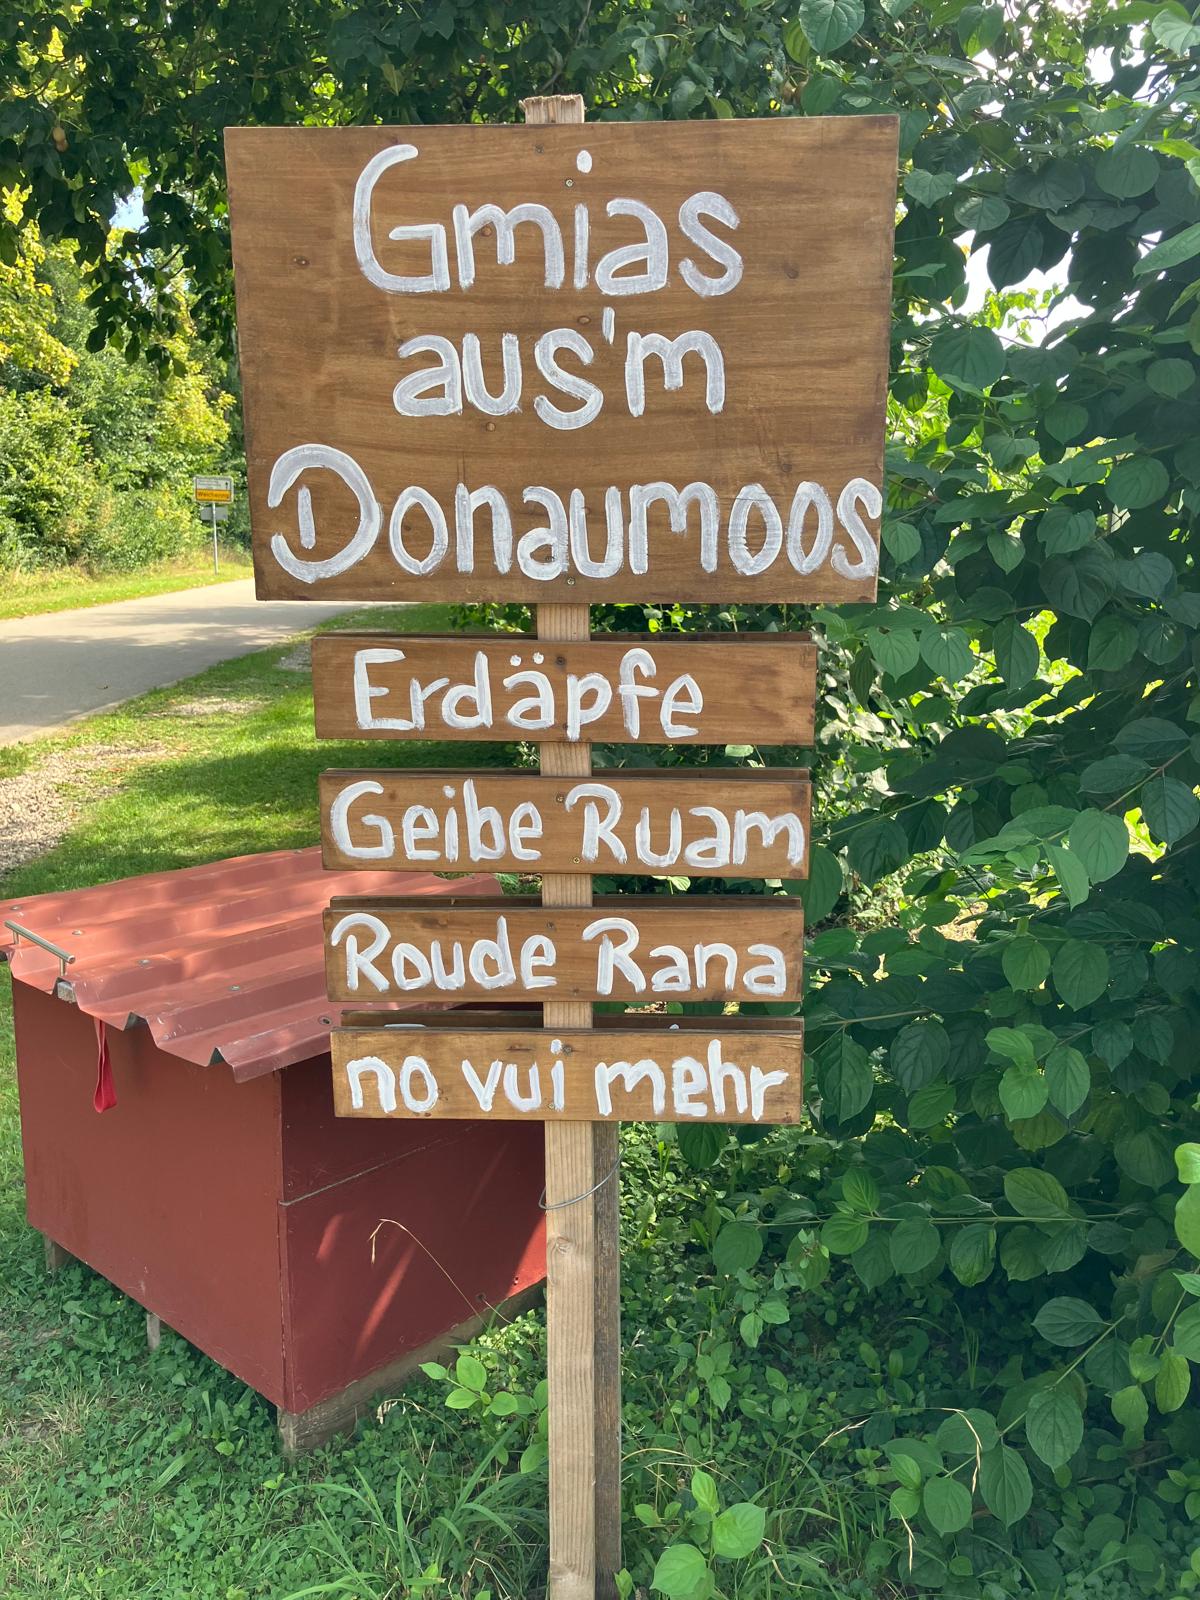 Gmias
aus'm
Donaumoos
Erdäpfe
Geibe Ruam
Roude Rana
no vui mehr
Weichering